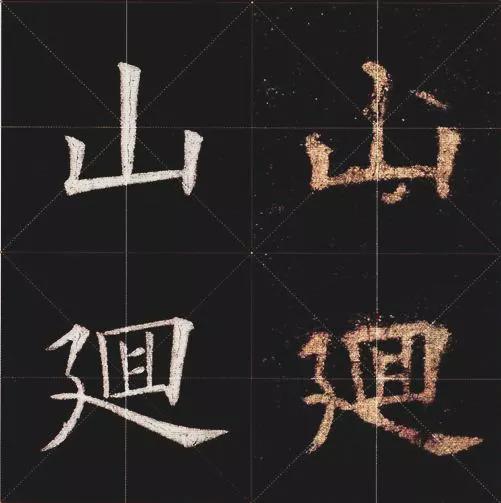 山 山
廻 廻